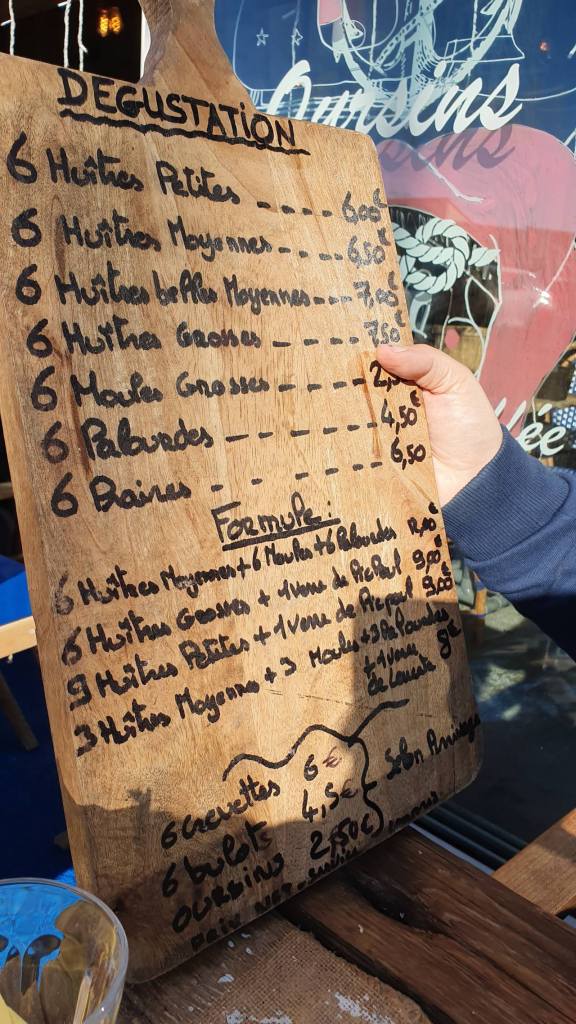 DEGUSTATION
6 Huîtres Petites ---- 6,00€
6 Huîtres Moyennes ---- 6,50€
6 Huîtres belles Moyennes --- 7,00€
6 Huîtres Grosses ---- 7,50€
6 Moules Grosses ---- 2,
6 Palourdes ------ 4,50€
6 Praires - - --- 6,50
Formule :
6 Huîtres Moyennes + 6 Moules + 6 Palourdes
6 Huîtres Grosses + 1 Verre de Picpoul 9,00€
9 Huîtres Petites + 1 Verre de Picpoul 9,00€
3 Huîtres Moyennes + 3 Moules + 3 Palourdes
+ 1 Verre 9€
6 Crevettes 6€
6 bulots 4,5€
Selon
OURSINS 2,50€
PRIX NET
Oursins
lée